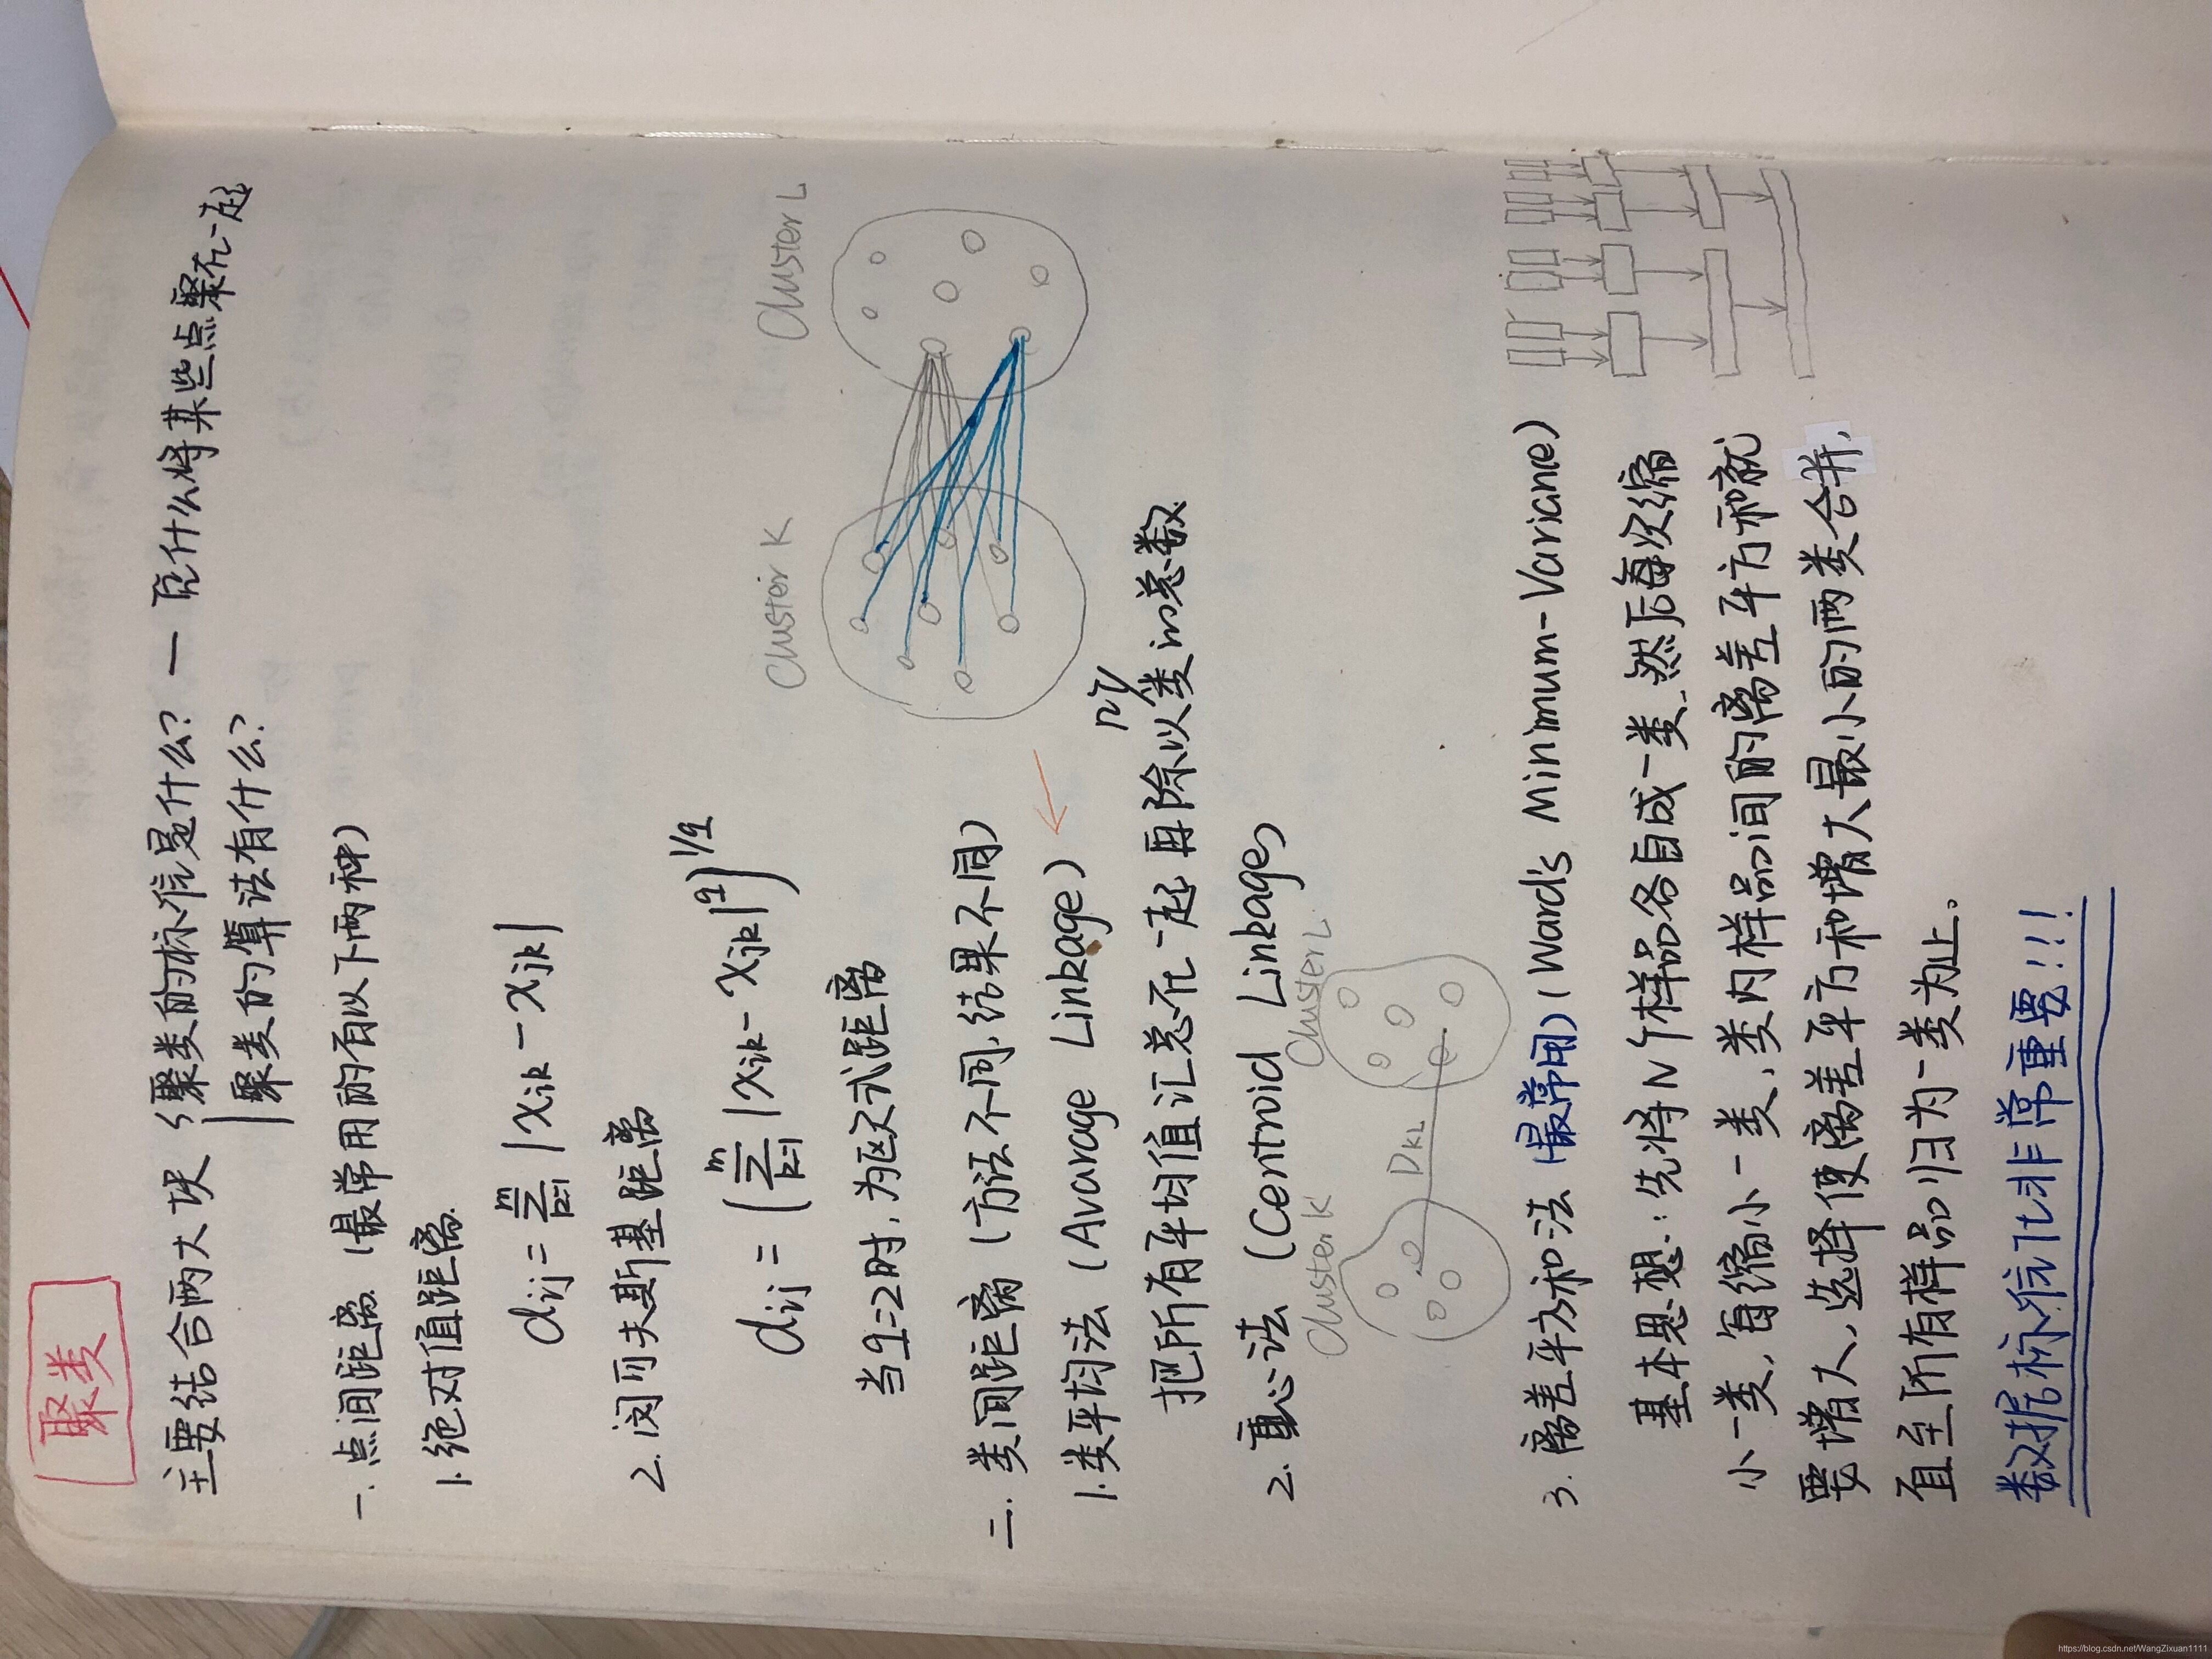 聚类
主要结合两大块 { 聚类的标准是什么? — 凭什么将某些点聚在一起
聚类的算法有什么?
一. 点间距离 (最常用的有以下两种)
1. 绝对值距离
dij = m∑k=1 |xik - xjk|
2. 闵可夫斯基距离
dij = (m∑k=1 |xik - xjk|^q)^1/q
当q=2时, 为欧式距离
二. 类间距离 (方法不同, 结果不同)
Cluster K
Cluster L
1. 类平均法 (Avarage Linkage)
把所有平均值汇总在一起 再除以类的总数
2. 重心法 (Centroid Linkage)
Cluster K
DKL
Cluster L
3. 离差平方和法 (最常用) (Ward's Minimum-Variane)
基本思想: 先将N个样品各自成一类, 然后每次缩
小一类, 每缩小一类, 类内样品间的离差平方和就
要增大, 选择使离差平方和增大最小的两类合并,
直至所有样品归为一类为止。
数据标准化非常重要!!!
https://blog.csdn.net/WangZixuan1111